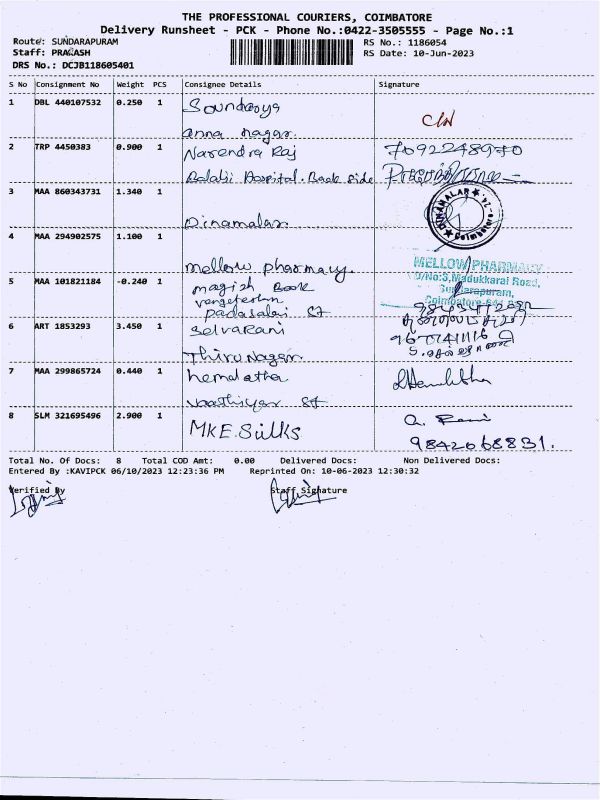 THE PROFESSIONAL COURIERS, COIMBATORE
Delivery Runsheet - PCK - Phone No.:0422-3505555 - Page No.:1
Route: SUNDARAPURAM RS No.: 1186054
Staff: PRAKASH RS Date: 10-Jun-2023
DRS No.: DCJB118605401
S No Consignment No Weight PCS Consignee Details Signature
1 DBL 440107532 0.250 1 Soundarya
anna nagar.
2 TRP 4450383 0.900 1 Narendra Raj 7092248970
Balaji Hospital. Back side
3 MAA 860343731 1.340 1
Dinamalar DINAMALAR Coimbatore
4 MAA 294902575 1.100 1
mellow pharmacy. MELLOW PHARMACY
D/No:S,Madukkarai Road,
Sundarapuram,
5 MAA 101821184 -0.240 1 magish Book
padasalai St
6 ART 1853293 3.450 1 selvaRani
Thiru Nagar.
7 MAA 299865724 0.440 1 hemalatha
vaathiyar St
8 SLM 321695496 2.900 1 MKE Silks
9842068831.
Total No. Of Docs: 8 Total COD Amt: 0.00 Delivered Docs: Non Delivered Docs:
Entered By :KAVIPCK 06/10/2023 12:23:36 PM Reprinted On: 10-06-2023 12:30:32
Verified By Staff Signature